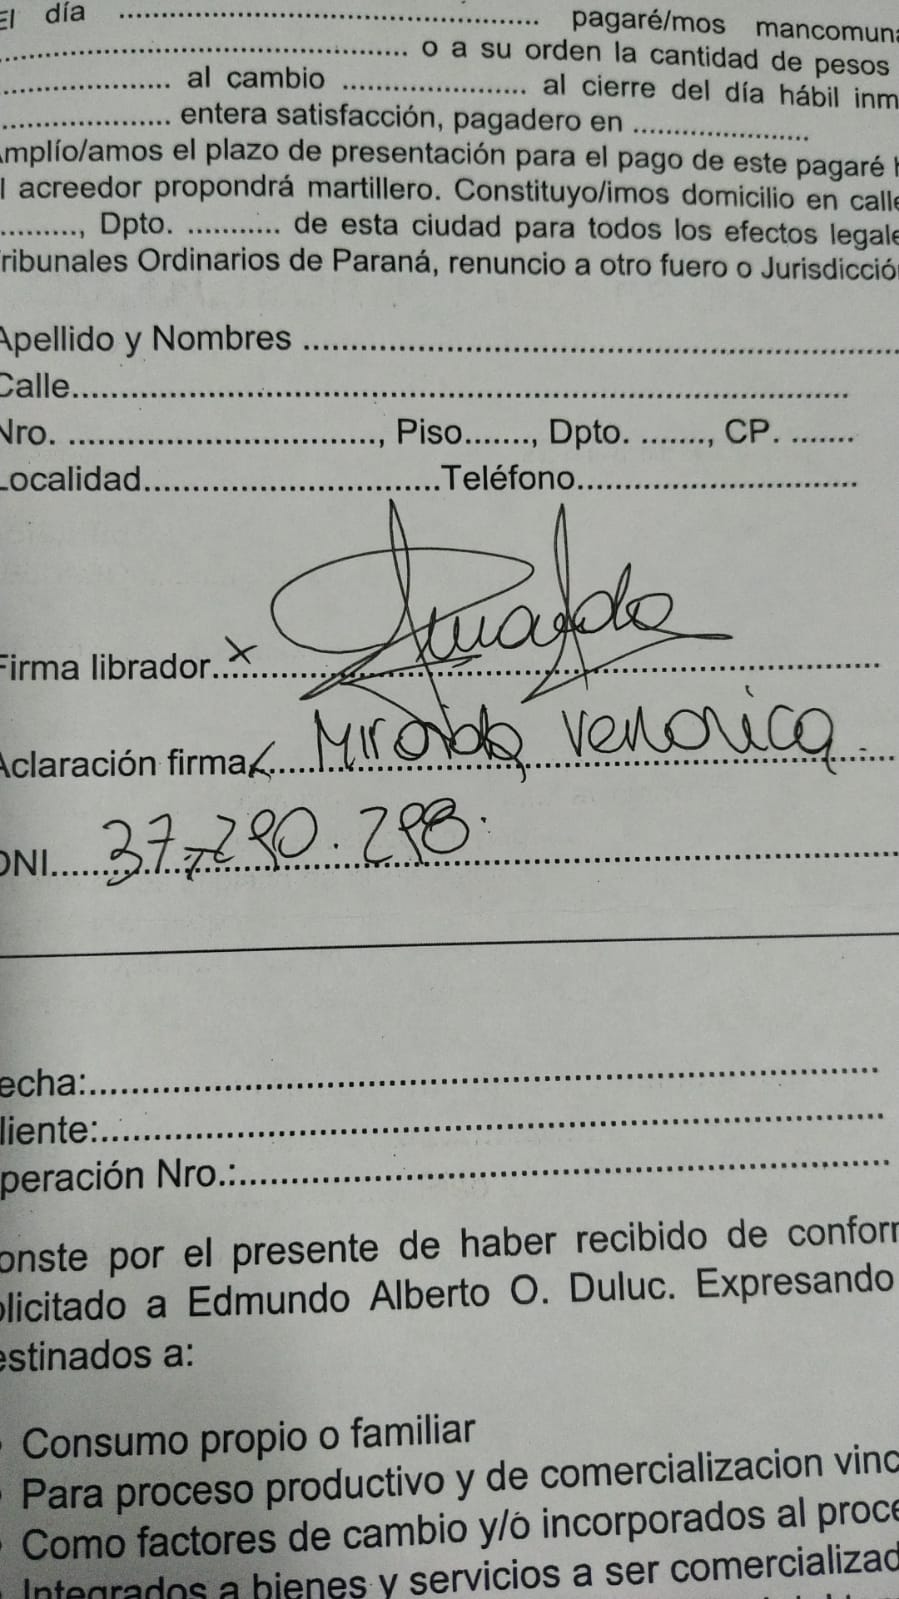 El día ........................................ pagaré/mos mancomun
........................................ o a su orden la cantidad de pesos
.................... al cambio .................... al cierre del día hábil inm
.................... entera satisfacción, pagadero en ....................
Amplío/amos el plazo de presentación para el pago de este pagaré h
l acreedor propondrá martillero. Constituyo/imos domicilio en calle
.........., Dpto. ............ de esta ciudad para todos los efectos legale
ribunales Ordinarios de Paraná, renuncio a otro fuero o Jurisdicció
Apellido y Nombres ........................................
Calle........................................
Nro. ................................, Piso......., Dpto. ......., CP. .......
Localidad...............................Teléfono..............................
Firma librador..x
Aclaración firma.... Miranda Veronica
DNI.... 37.290.298.
echa:........................................
liente:........................................
peración Nro.:........................................
onste por el presente de haber recibido de confor
olicitado a Edmundo Alberto O. Duluc. Expresando
estinados a:
Consumo propio o familiar
Para proceso productivo y de comercializacion vinc
Como factores de cambio y/ó incorporados al proce
Integrados a bienes y servicios a ser comercializad